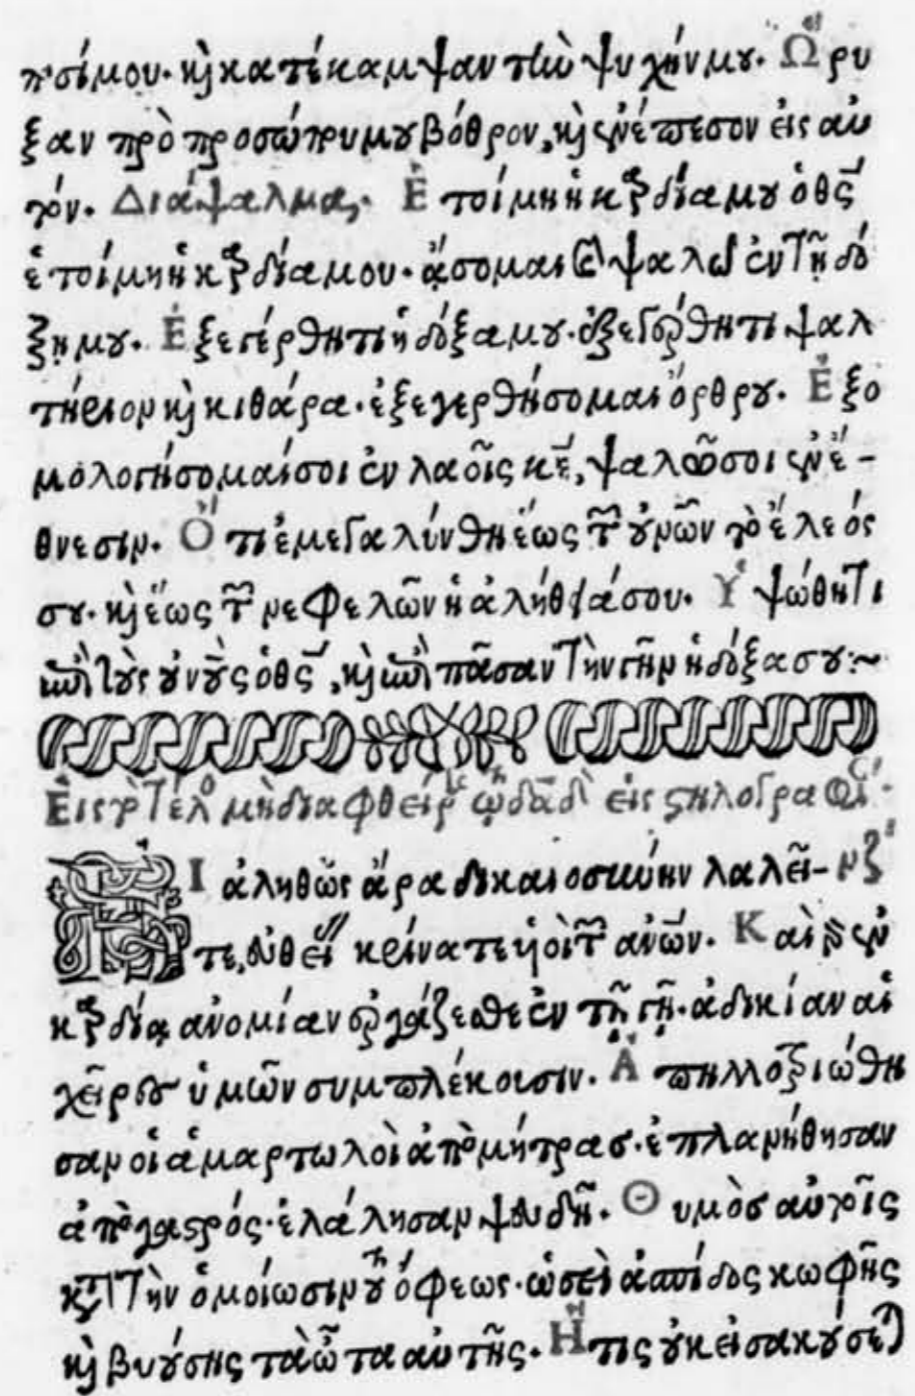 ποσί μου· καὶ κατέκαμψαν τὴν ψυχήν μου. Ὤρυ
ξαν πρὸ προσώπου μου βόθρον, καὶ ἐνέπεσον εἰς αὐ
τόν. Διάψαλμα. Ἑτοίμη ἡ καρδία μου ὁ θς
ἑτοίμη ἡ καρδία μου· ᾄσομαι καὶ ψαλῶ ἐν τῇ δό
ξῃ μου. Ἐξεγέρθητι ἡ δόξα μου· ἐξεγέρθητι ψαλ
τήριον καὶ κιθάρα· ἐξεγερθήσομαι ὄρθρου. Ἐξο
μολογήσομαί σοι ἐν λαοῖς κε, ψαλῶ σοι ἐν ἔ-
θνεσιν. Ὅτι ἐμεγαλύνθη ἕως τῶν οὐνῶν τὸ ἔλεός
σου· καὶ ἕως τῶν νεφελῶν ἡ ἀλήθειά σου. Ὑψώθητι
ἐπὶ τοὺς οὐνοὺς ὁ θς, καὶ ἐπὶ πᾶσαν τὴν γῆν ἡ δόξα σου:~
Εἰς τὸ τέλος μὴ διαφθείρῃς τῷ δαδ εἰς στηλογραφίαν·
Εἰ ἀληθῶς ἄρα δικαιοσύνην λαλεῖ- νζ
τε, εὐθείας κρίνατε υἱοὶ τῶν ἀνῶν. Καὶ γὰρ ἐν
καρδίᾳ ἀνομίαν ἐργάζεσθε ἐν τῇ γῇ· ἀδικίαν αἱ
χεῖρες ὑμῶν συμπλέκουσιν. Ἀπηλλοτριώθη
σαν οἱ ἁμαρτωλοὶ ἀπὸ μήτρας· ἐπλανήθησαν
ἀπὸ γαστρός· ἐλάλησαν ψευδῆ. Θυμὸς αὐτοῖς
κατὰ τὴν ὁμοίωσιν τοῦ ὄφεως· ὡσεὶ ἀσπίδος κωφῆς
καὶ βυούσης τὰ ὦτα αὐτῆς. Ἥτις οὐκ εἰσακούσεται